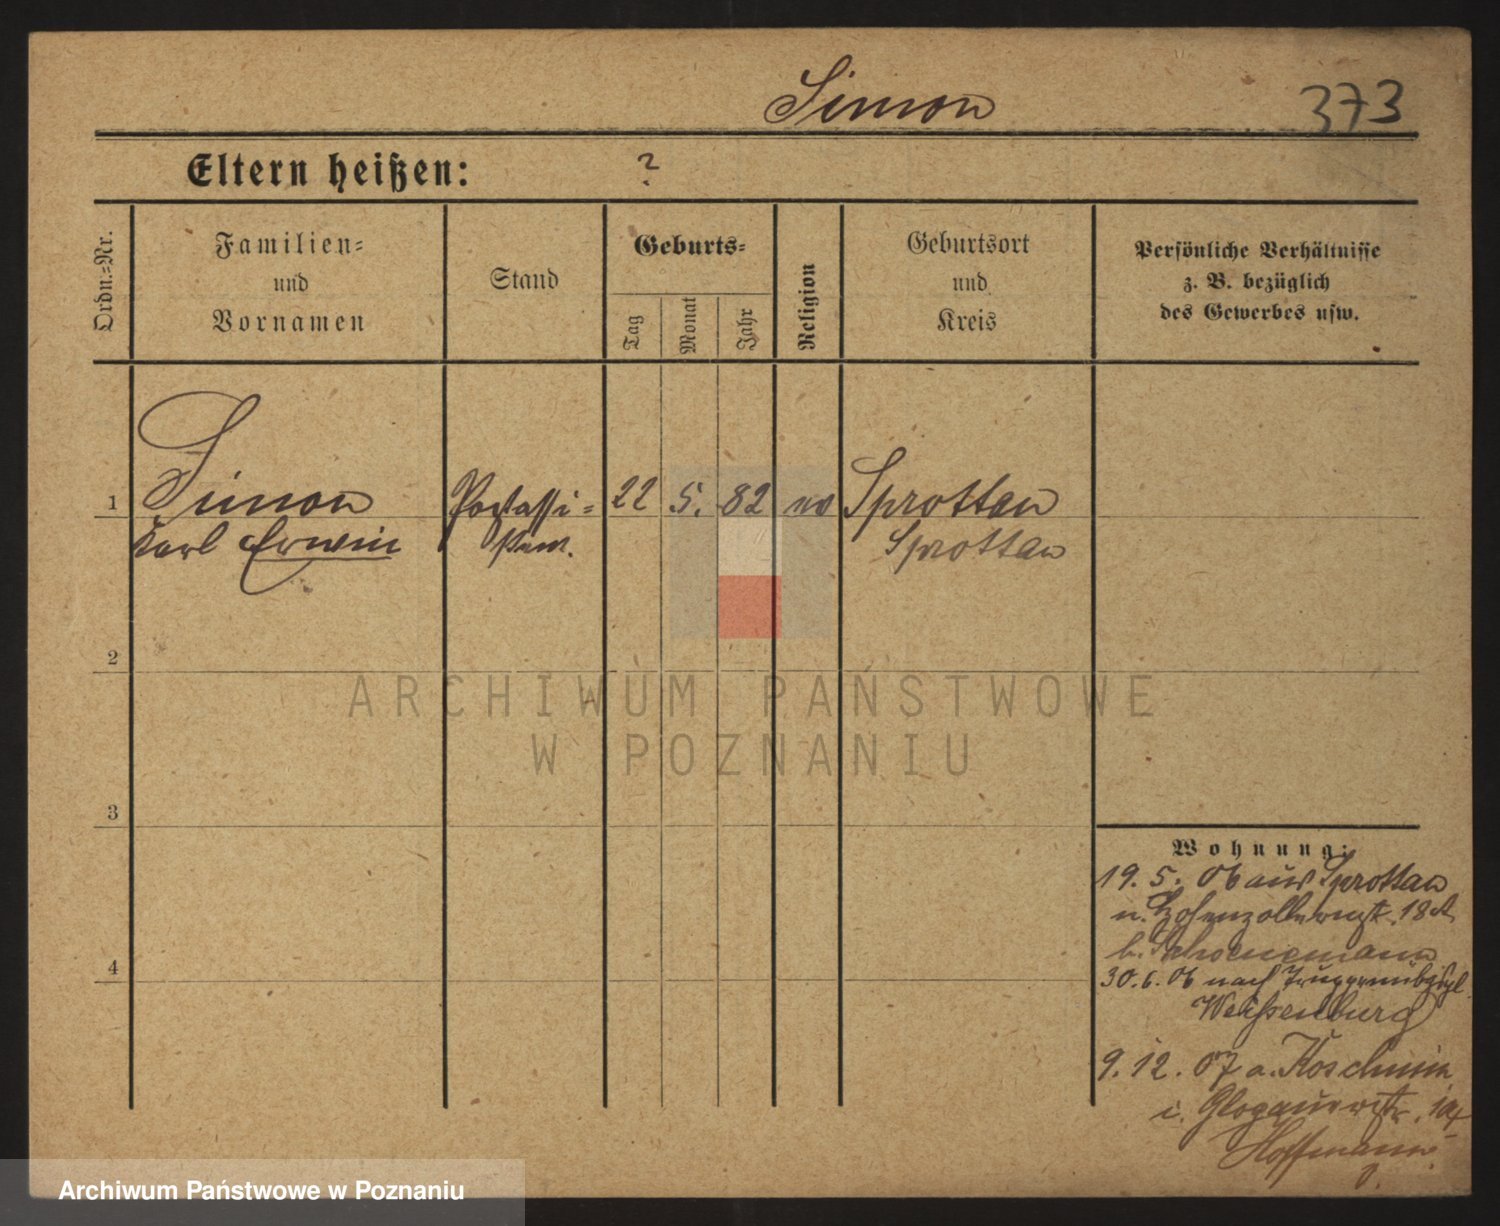 Simon
373
Eltern heißen: ?
Ordn.=Nr.
Familien=
und
Vornamen
Stand
Geburts=
Tag
Monat
Jahr
Religion
Geburtsort
und
Kreis
Persönliche Verhältnisse
z. B. bezüglich
des Gewerbes usw.
1
Simon
Karl Erwin
Postassi=
stent.
22
5.
82
ev
Sprottau
Sprottau
2
3
4
Wohnung:
19. 5. 06 aus Sprottau
n. Hohenzollernstr. 18
b. Schoenemann
30. 6. 06 nach Truppenübgspl.
Weißenburg
9. 12. 07 a. Koschmin
i. Glogauerstr.
Hoffmann
ARCHIWUM PAŃSTWOWE
W POZNANIU
Archiwum Państwowe w Poznaniu